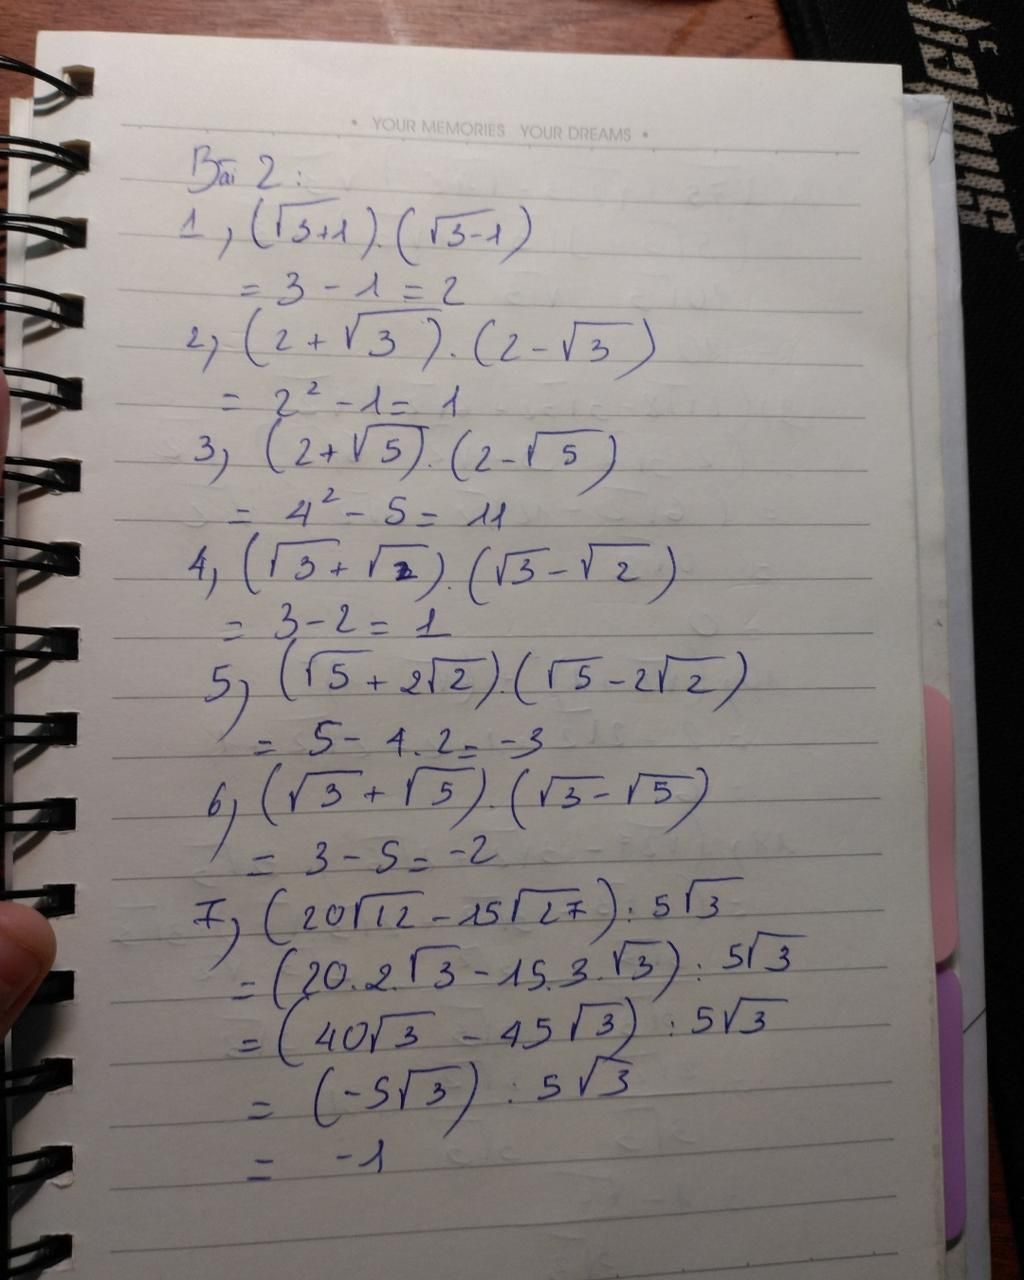 • YOUR MEMORIES YOUR DREAMS •
Bài 2:
1, (√3+1).(√3-1)
= 3 - 1 = 2
2, (2 + √3).(2 - √3)
= 2² - 1 = 1
3, (2 + √5).(2 - √5)
= 4² - 5 = 11
4, (√3 + √2).(√3 - √2)
= 3 - 2 = 1
5, (√5 + 2√2).(√5 - 2√2)
= 5 - 4.2 = -3
6, (√3 + √5).(√3 - √5)
= 3 - 5 = -2
7, (20√12 - 15√27) : 5√3
= (20.2.√3 - 15.3.√3) : 5√3
= (40√3 - 45√3) : 5√3
= (-5√3) : 5√3
= -1